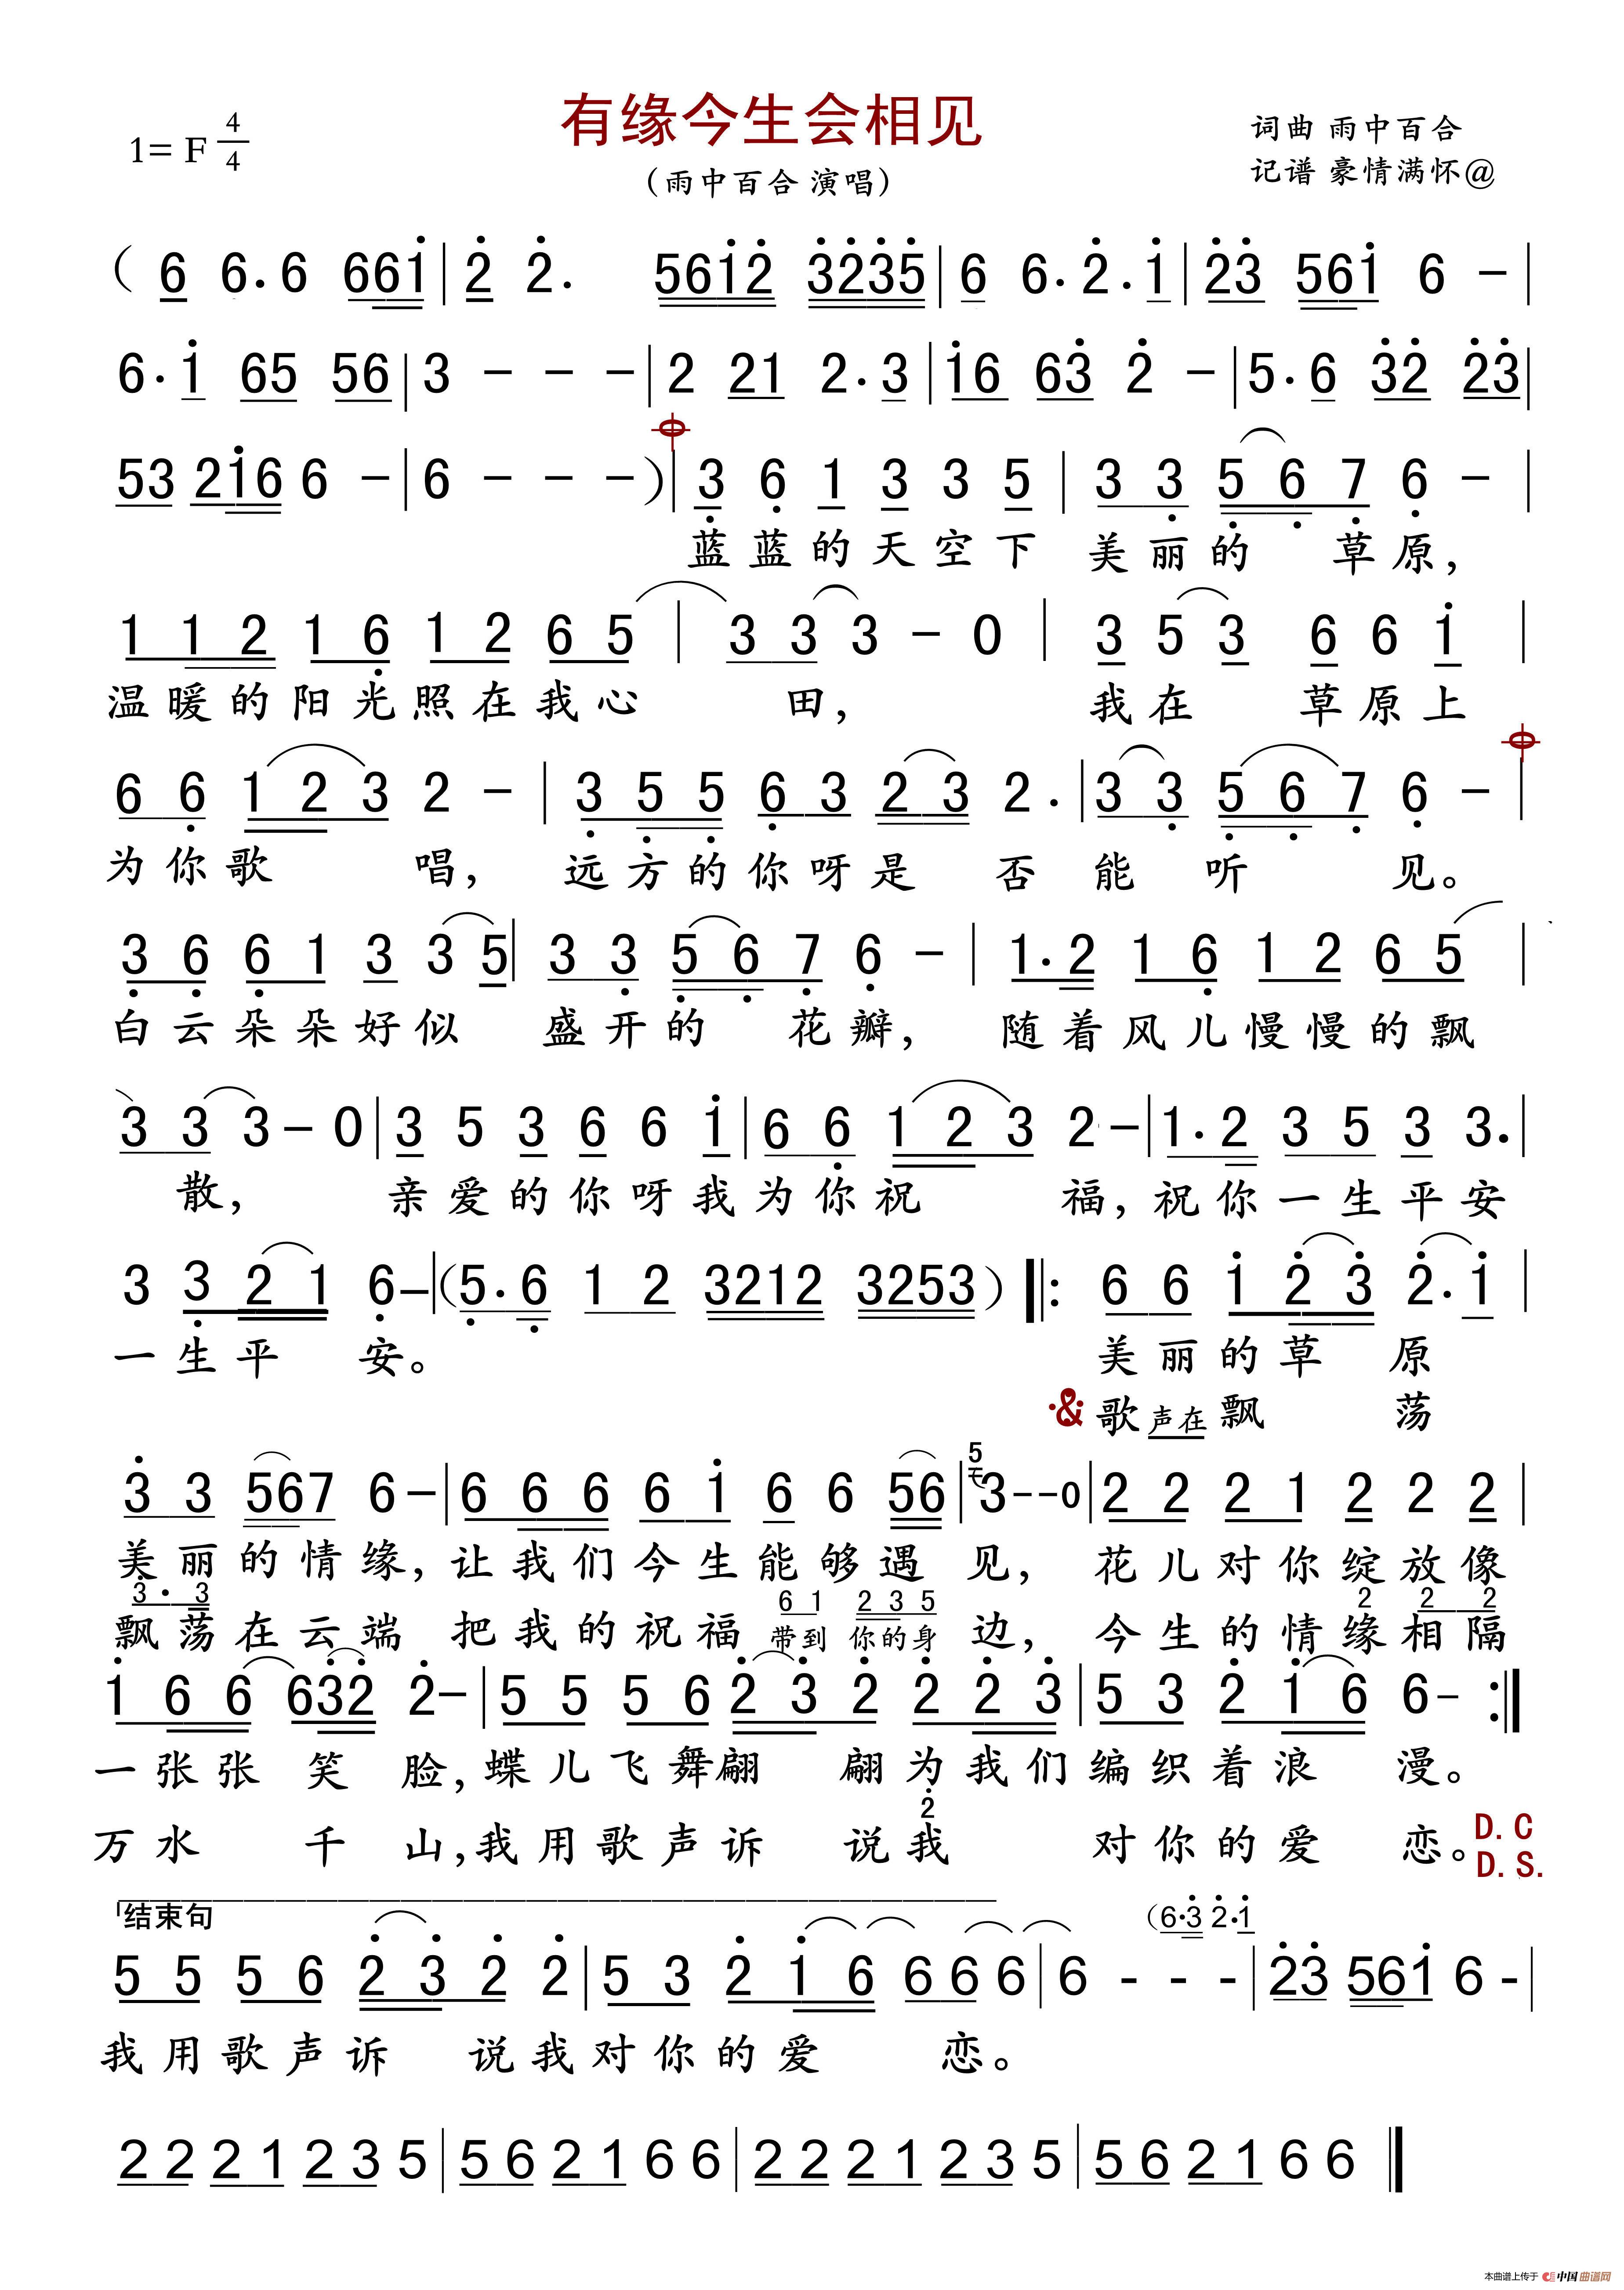 有缘今生会相见
1= F 4/4
(雨中百合 演唱)
词曲 雨中百合
记谱 豪情满怀@
( 6 6. 6 661 | 2 2. 5612 3235 | 6 6. 2. 1 | 23 561 6 - |
6. 1 65 56 | 3 - - - | 2 21 2. 3 | 16 63 2 - | 5. 6 32 23 |
53 216 6 - | 6 - - - ) | 3 6 1 3 3 5 | 3 3 5 6 7 6 - |
蓝蓝的天空下 美丽的 草原,
1 1 2 1 6 1 2 6 5 | 3 3 3 - 0 | 3 5 3 6 6 1 |
温暖的阳光照在我心 田, 我在 草原上
6 6 1 2 3 2 - | 3 5 5 6 3 2 3 2. | 3 3 5 6 7 6 - |
为你歌 唱, 远方的你呀是 否 能 听 见。
3 6 6 1 3 3 5 | 3 3 5 6 7 6 - | 1. 2 1 6 1 2 6 5 |
白云朵朵好似 盛开的 花瓣, 随着风儿慢慢的飘
3 3 3 - 0 | 3 5 3 6 6 1 | 6 6 1 2 3 2 - | 1. 2 3 5 3 3. |
散, 亲爱的你呀我为你祝 福, 祝你一生平安
3 3 2 1 6 - | (5. 6 1 2 3212 3253 ) |: 6 6 1 2 3 2. 1 |
一生平 安。 美丽的草 原
& 歌声在飘 荡
3 3 567 6 - | 6 6 6 6 1 6 6 56 | 5 3 - - 0 | 2 2 2 1 2 2 2 |
美丽的情缘, 让我们今生能够遇 见, 花儿对你绽放像
3. 3 6 1 2 3 5 2 2 2
飘荡在云端 把我的祝福 带到 你的身 边, 今生的情缘相隔
1 6 6 632 2 - | 5 5 5 6 2 3 2 2 2 3 | 5 3 2 1 6 6 - :|
一张张 笑 脸, 蝶儿飞舞翩 翩为我们编织着浪 漫。
2
万水 千 山, 我用歌声诉 说我 对你的爱 恋。 D.C
D.S.
结束句 (6. 3 2. 1
5 5 5 6 2 3 2 2 | 5 3 2 1 6 6 6 6 | 6 - - - | 23 561 6 - |
我用歌声诉 说我对你的爱 恋。
2 2 2 1 2 3 5 | 5 6 2 1 6 6 | 2 2 2 1 2 3 5 | 5 6 2 1 6 6 ‖
本曲谱上传于 中国曲谱网